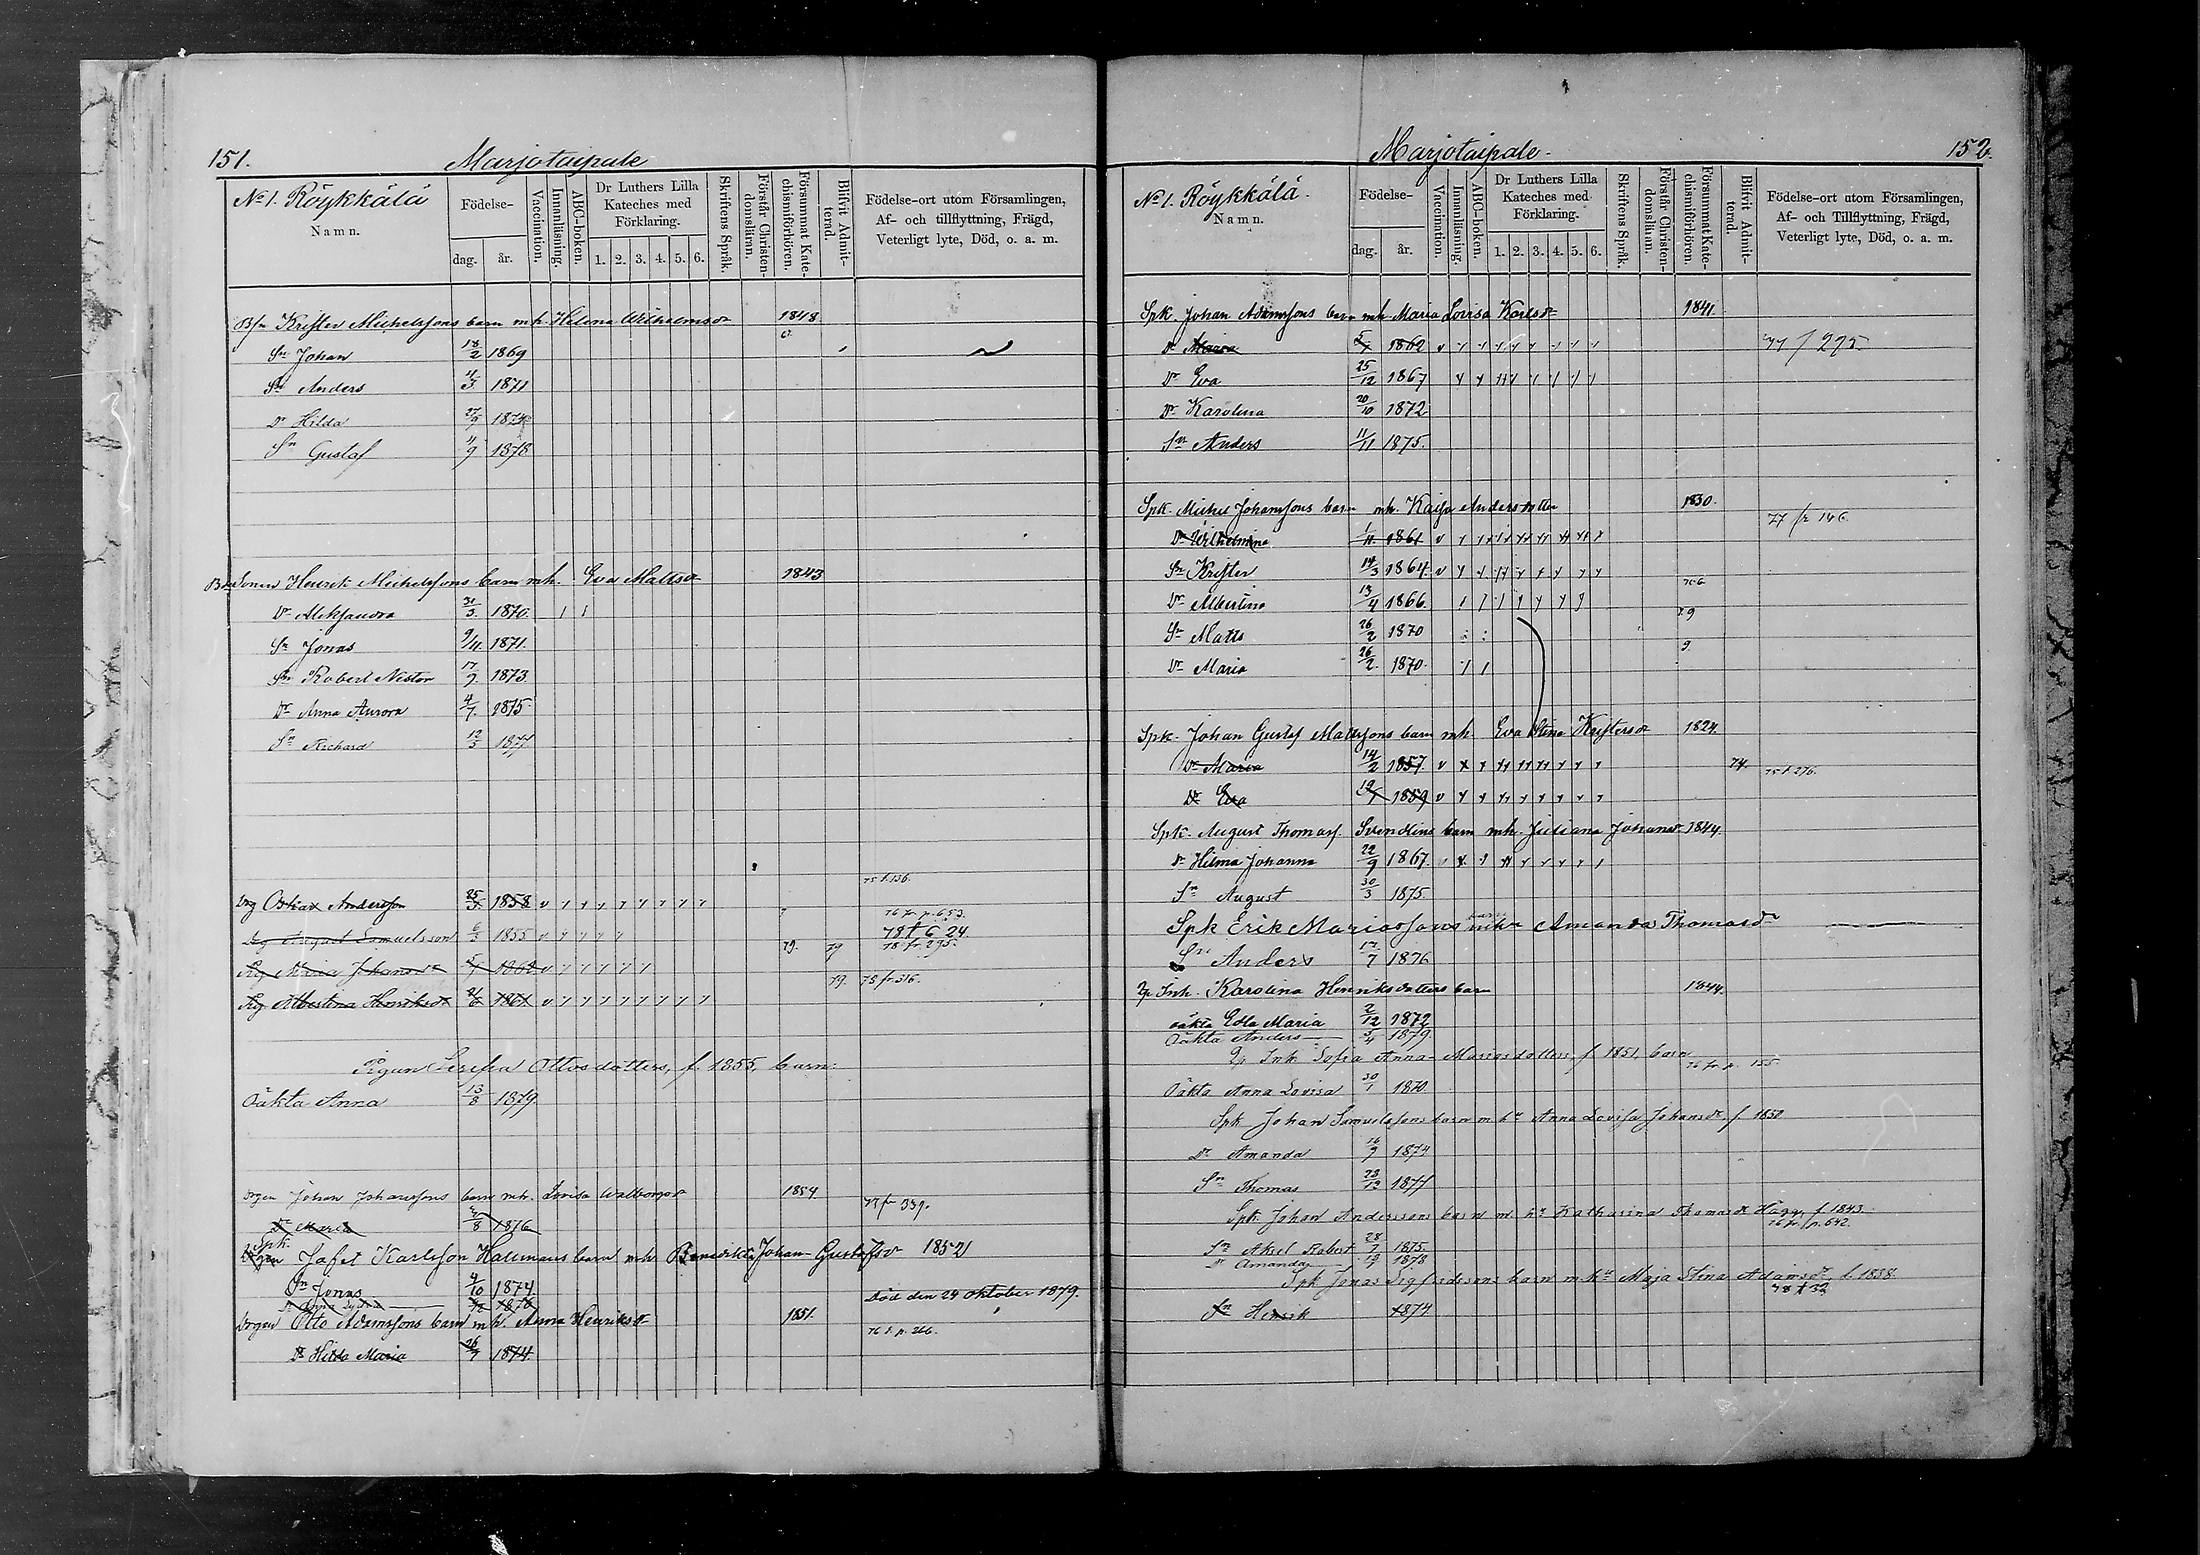 151. Marjotaipale
No 1. Röykkälä
Namn.
Födelse-
dag. år.
Vaccination.
Innanläsning.
ABC-boken.
Dr Luthers Lilla Kateches med Förklaring.
1. 2. 3. 4. 5. 6.
Skriftens Språk.
Förstår Christendomsläran.
Försummat Katechismiförhören.
Blifvit Admitterad.
Födelse-ort utom Församlingen,
Af- och tillflyttning, Frägd,
Veterligt lyte, Död, o. a. m.
Krister Michelssons barn mh. Helena Wilhelmsdr 1848
Sn Johan 18/2 1869
Sn Anders 11/3 1871
Dr Hilda 27/9 1874
Sn Gustaf 11/9 1878
Henrik Michelssons barn mh. Eva Mattsdr 1843
Dr Aleksandra 31/3 1870
Sn Jonas 9/11 1871
Sn Robert Nestor 17/9 1873
Dr Anna Aurora 4/7 1875
Sn Richard 12/3 1877
75 t. 136.
Drg Oskar Andersson 25/3 1858 v
76 fr. p. 653.
Drg August Samuelsson 6/3 1855 v
78 t 624
79. 79 78 fr. 295.
Pig Maria Johansdr 1862 v
79. 78 fr. 316.
Pig Albertina Henriksdr 21/6 1861 v
Pigan Serefia Ottosdotters, f. 1855, barn:
Oäkta Anna 13/8 1879.
Drgen Johan Johanssons barn mh. Lovisa Walborgsdr 1854
77 fr 339.
Dr Maria 8 1876
Spk.
Drgen Jafet Karlsson Hallmans barn mh Benedikta Johan-Gustafsdr 1852
Sn Jonas 4/10 1874
Död den 24 oktober 1879.
Drgen Otto Adamssons barn mh. Anna Henriksdr 1851.
76 t. p. 266.
Dr Hilda Maria 26/7 1874.
Marjotaipale. 152.
No 1. Röykkälä.
Namn.
Födelse-
dag. år.
Vaccination.
Innanläsning.
ABC-boken.
Dr Luthers Lilla Kateches med Förklaring.
1. 2. 3. 4. 5. 6.
Skriftens Språk.
Förstår Christendomsläran.
Försummat Katechismiförhören.
Blifvit Admitterad.
Födelse-ort utom Församlingen,
Af- och Tillflyttning, Frägd,
Veterligt lyte, Död, o. a. m.
Spk. Johan Adamssons barn mh. Maria Lovisa Karlsdr 1841.
Dr Maria 1862 v 77 / 295.
Dr Eva 25/12 1867
Dr Karolina 20/10 1872
Sn Anders 11/11 1875.
Spk. Michel Johanssons barn mh. Kaisa Andersdotter 1830.
77 fr 146
Dr Wilhelmina 1/11 1861 v
Sn Krister 14/3 1864. v
Dr Albertina 13/4 1866.
Sn Matts 26/2 1870
Dr Maria 26/2 1870.
Spk. Johan Gustaf Mattssons barn mh. Eva Stina Kristersdr 1824.
Dr Maria 14/2 1857. v 74. 75 t. 276.
Dr Eva 1859 v
Spk. August Thomass. Svendlins barn mh. Juliana Johansdr 1844.
Dr Hilma Johanna 22/9 1867.
Sn August 30/3 1875.
Spk Erik Mariassons barn mhu Amanda Thomasdr
Sn Anders 17/7 1876
Inh. Karolina Henriksdotters barn 1844.
oäkta Edla Maria 2/12 1872
Oäkta Anders 3/4 1879.
Inh Sofia Anna-Mariasdotters, f. 1851, barn
76 fr. p. 155.
Oäkta Anna Lovisa 30/1 1870.
Spk Johan Samuelssons barn m hu Anna Lovisa Johansdr f. 1850
Dr Amanda 16/9 1874
Sn Thomas 23/12 1877
Spk Johan Anderssons barn m hu Katharina Thomasdr Hägg, f. 1843.
76 fr. p. 642.
Sn Aksel Robert 28/7 1875.
Dr Amanda 1878
Spk Jonas Sigfridssons barn m hu Maja Stina Adamsdr f. 1838.
78 t 32
Sn Henrik 1874